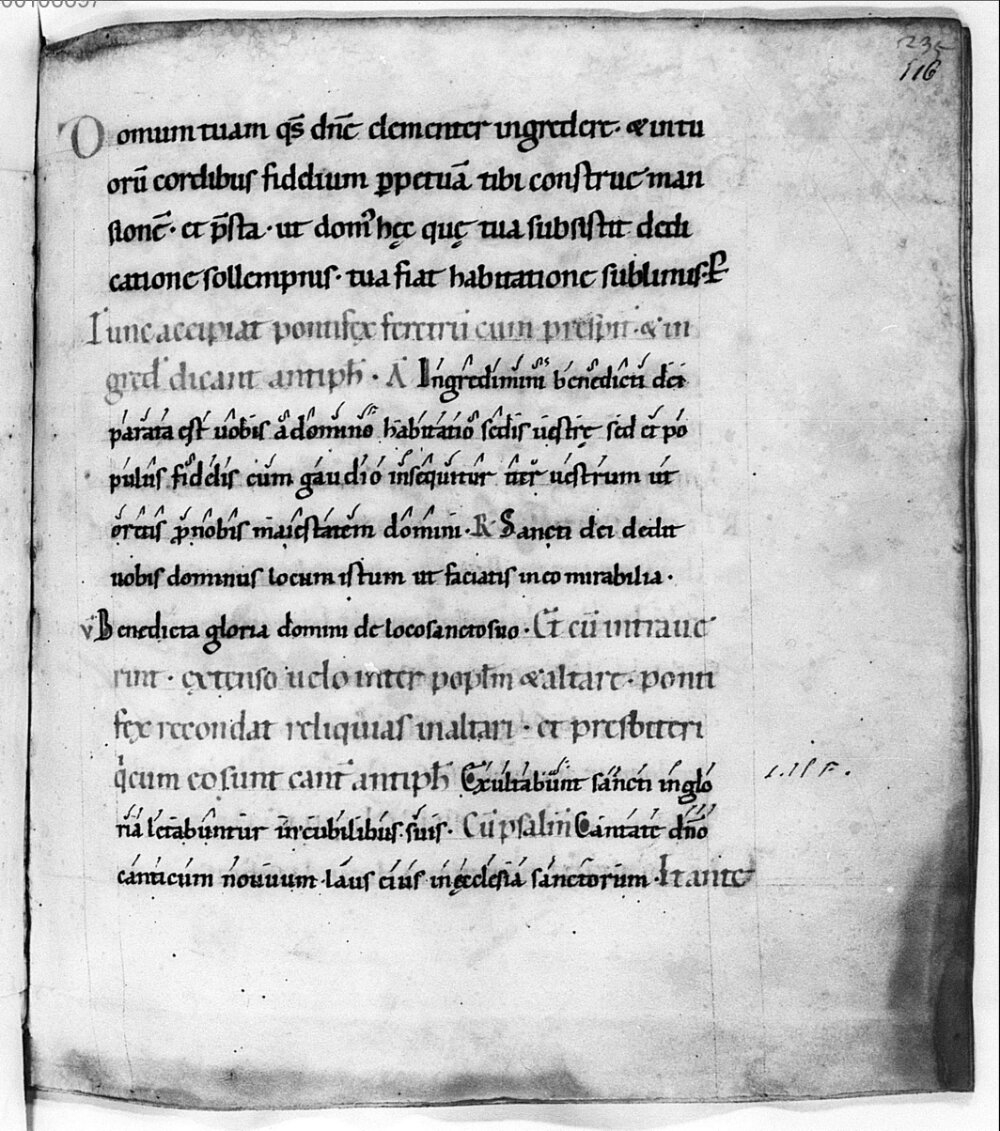 235
116
Domum tuam qs̄ dn̄e clementer ingredere· & in tu
orū cordibus fidelium ꝑpetuā tibi construe man
sionē· et p̄sta· ut domꝰ hęc quę tua subsistit dedi
catione sollempnis· tua fiat habitatione sublimis· P̄
Tunc accipiat pontifex feretrū cum presbit̄· & in
gred̄ dicant antiph̄· A Ingredimini benedicti dei
parata est uobis a domino habitatio sedis uestrę sed et po
pulus fidelis cum gaudio insequitur iter uestrum ut
oretis ꝓ nobis maiestatem domini· R Sancti dei dedit
uobis dominus locum istum ut faciatis in eo mirabilia·
v Benedicta gloria domini de loco sancto suo· Et cū intraue
rint· extenso uelo inter popl̄m & altare· ponti
fex recondat reliquias in altari· et presbiteri
q̇ cum eo sunt cant̄ antiph̄ Exultabunt sancti in glo
ria letabuntur in cubilibus suis· Cū psalm Cantate dn̄o
canticum nouum· laus eius in ęcclesia sanctorum· Ita inte